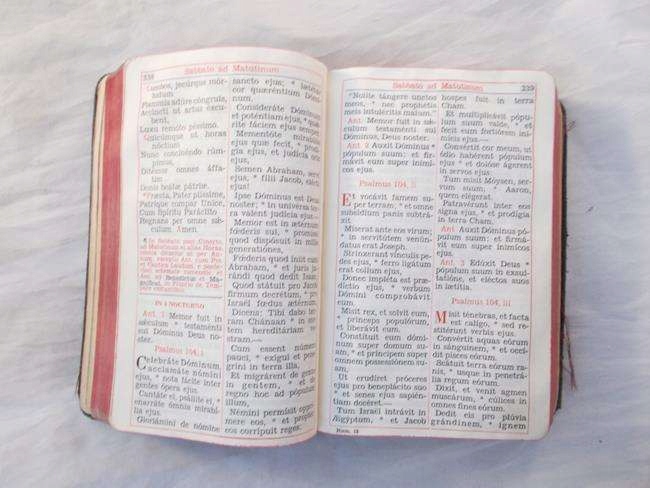 Sabbato ad Matutinum
338
Lumbos, jecúrque mór-
bidum
Flammis adúre cóngruis,
Accíncti ut artus éxcu-
bent,
Luxu remóto péssimo.
Quicúmque ut horas
nóctium
Nunc concinéndo rúm-
pimus,
Ditémur omnes áffa-
tim
Donis beátæ pátriæ.
Præsta, Pater piíssime,
Patríque compar Unice,
Cum Spíritu Paráclito
Regnans per omne sǽ-
culum. Amen.
IN I NOCTURNO
Ant. 1 Memor fuit in
sǽculum * testaménti
sui Dóminus Deus no-
ster.
Psalmus 104, I
Celebráte Dóminum,
acclamáte nómini
ejus, * nota fácite inter
gentes ópera ejus.
Cantáte ei, psállite ei, *
enarráte ómnia mirabí-
lia ejus.
Gloriámini de nómine
sancto ejus; * lætétur
cor quæréntium Dómi-
num.
Consideráte Dóminum
et poténtiam ejus, * quǽ-
rite fáciem ejus semper.
Mementóte mirabílium
ejus quæ fecit, * prodí-
gia ejus, et judícia oris
ejus,
Semen Abraham, servi
ejus, * fílii Jacob, elécti
ejus!
Ipse Dóminus est Deus
noster; * in univérsa ter-
ra valent judícia ejus.—
Memor est in ætérnum
fœderis sui, * promíssi
quod dispósuit in mille
generatiónes,
Fœderis quod íniit cum
Abraham, * et juris ju-
rándi quod dedit Isaac,
Quod státuit pro Jacob
firmum decrétum, * pro
Israël fœdus ætérnum,
Dicens: Tibi dabo ter-
ram Chánaan * in sor-
tem hereditáriam ve-
stram.—
Cum essent número
pauci, * exígui et pere-
gríni in terra illa,
Et migrárent de gente
in gentem, * et de
regno hoc ad pópulum
illíum,
Némini permísit opprí-
mere eos, * et propter
eos corrípuit reges:
Sabbato ad Matutinum
339
"Nolíte tángere unctos
meos, * nec prophétis
meis intuléritis malum."
Ant. Memor fuit in sǽ-
culum testaménti sui
Dóminus, Deus noster.
Ant. 2 Auxit Dóminus *
pópulum suum; et fir-
mávit eum super inimí-
cos ejus.
Psalmus 104, II
Et vocávit famem su-
per terram; * et omne
subsídium panis subtrá-
xit
Míserat ante eos virum;
* in servitútem venún-
datus erat Joseph.
Strínxerant vínculis pe-
des ejus, * ferro ligátum
erat collum ejus,
Donec impléta est præ-
díctio ejus, * verbum
Dómini comprobávit
eum.
Misit rex, et solvit eum,
* princeps populórum,
et liberávit eum.
Constítuit eum dómi-
num super domum su-
am, * et príncipem super
omnem possessiónem su-
am,
Ut erudíret próceres
ejus pro beneplácito suo
* et senes ejus sapién-
tiam docéret.—
Tum Israël intrávit in
Ægýptum, * et Jacob
Brev. 12
hospes fuit in terra
Cham.
Et multiplicávit pópu-
lum suum valde, * et
fecit eum fortiórem ini-
mícis ejus.—
Convértit cor meum, ut
ódio habérent pópulum
ejus * et dolóse ágerent
in servos ejus.
Tum misit Móysen, ser-
vum suum; * Aaron,
quem elégerat.
Patravérunt inter eos
signa ejus, * et prodígia
in terra Cham.
Ant. Auxit Dóminus pó-
pulum suum; et firmá-
vit eum super inimícos
ejus.
Ant. 3 Edúxit Deus *
pópulum suum in exsul-
tatióne, et eléctos suos
in lætítia.
Psalmus 104, III
Misit ténebras, et facta
est calígo, * sed re-
stitérunt verbis ejus.
Convértit aquas eórum
in sánguinem, * et occí-
dit pisces eórum.
Scátuit terra eórum ra-
nis, * usque in penetrá-
lia regum eórum.
Dixit, et venit agmen
muscárum, * cúlices in
omnes fines eórum.
Dedit eis pro plúvia
grándinem, * ignem